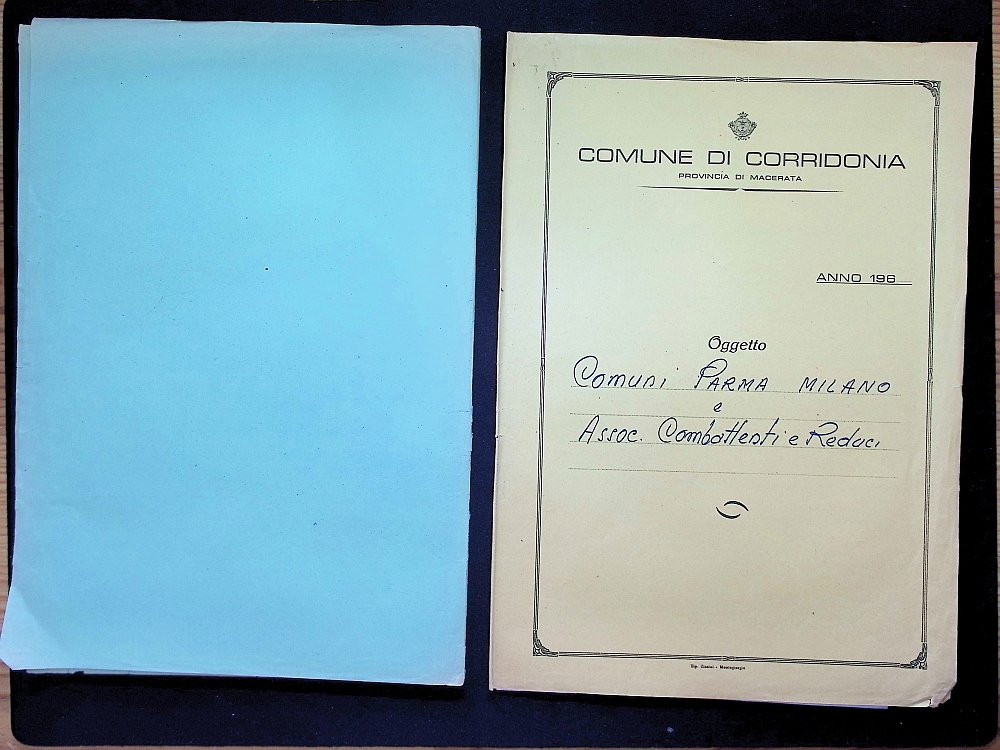 COMUNE DI CORRIDONIA
PROVINCIA DI MACERATA
ANNO 196
Oggetto
Comuni PARMA MILANO
e
Assoc. Combattenti e Reduci
Tip. Zizzini - Montegiorgio